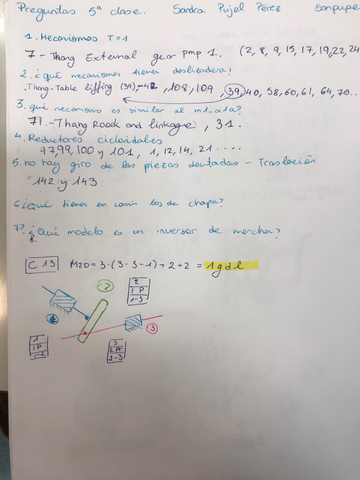 Preguntas 5ª clase. Sandra Pujel Pérez
1. Mecanismos T=1
7- Thang External gear pmp 1. (2, 8, 9, 15, 17, 19, 22, 24
2. ¿qué mecanismos tienen deslizadera?
Thang-Table lifting (39), 42, 108, 109, (39) 40, 58, 60, 61, 64, 70..
3. qué mecanismo es similar al
71.- Thang and linkage, 31.
4. Reductores cicloidales
97, 99, 100 y 101, 1, 12, 14, 21 ....
5. no hay giro de las piezas dentadas - Traslación
142 y 143
6. ¿Qué tienen en común los de chapa?
7. ¿Qué modelo es un inversor de marcha?
8.
C 13 M2D = 3·(3-3-1)+2+2 = 1 gdl
2
1 P
1-3
2
3
1
1 P
1-2
3
2-3